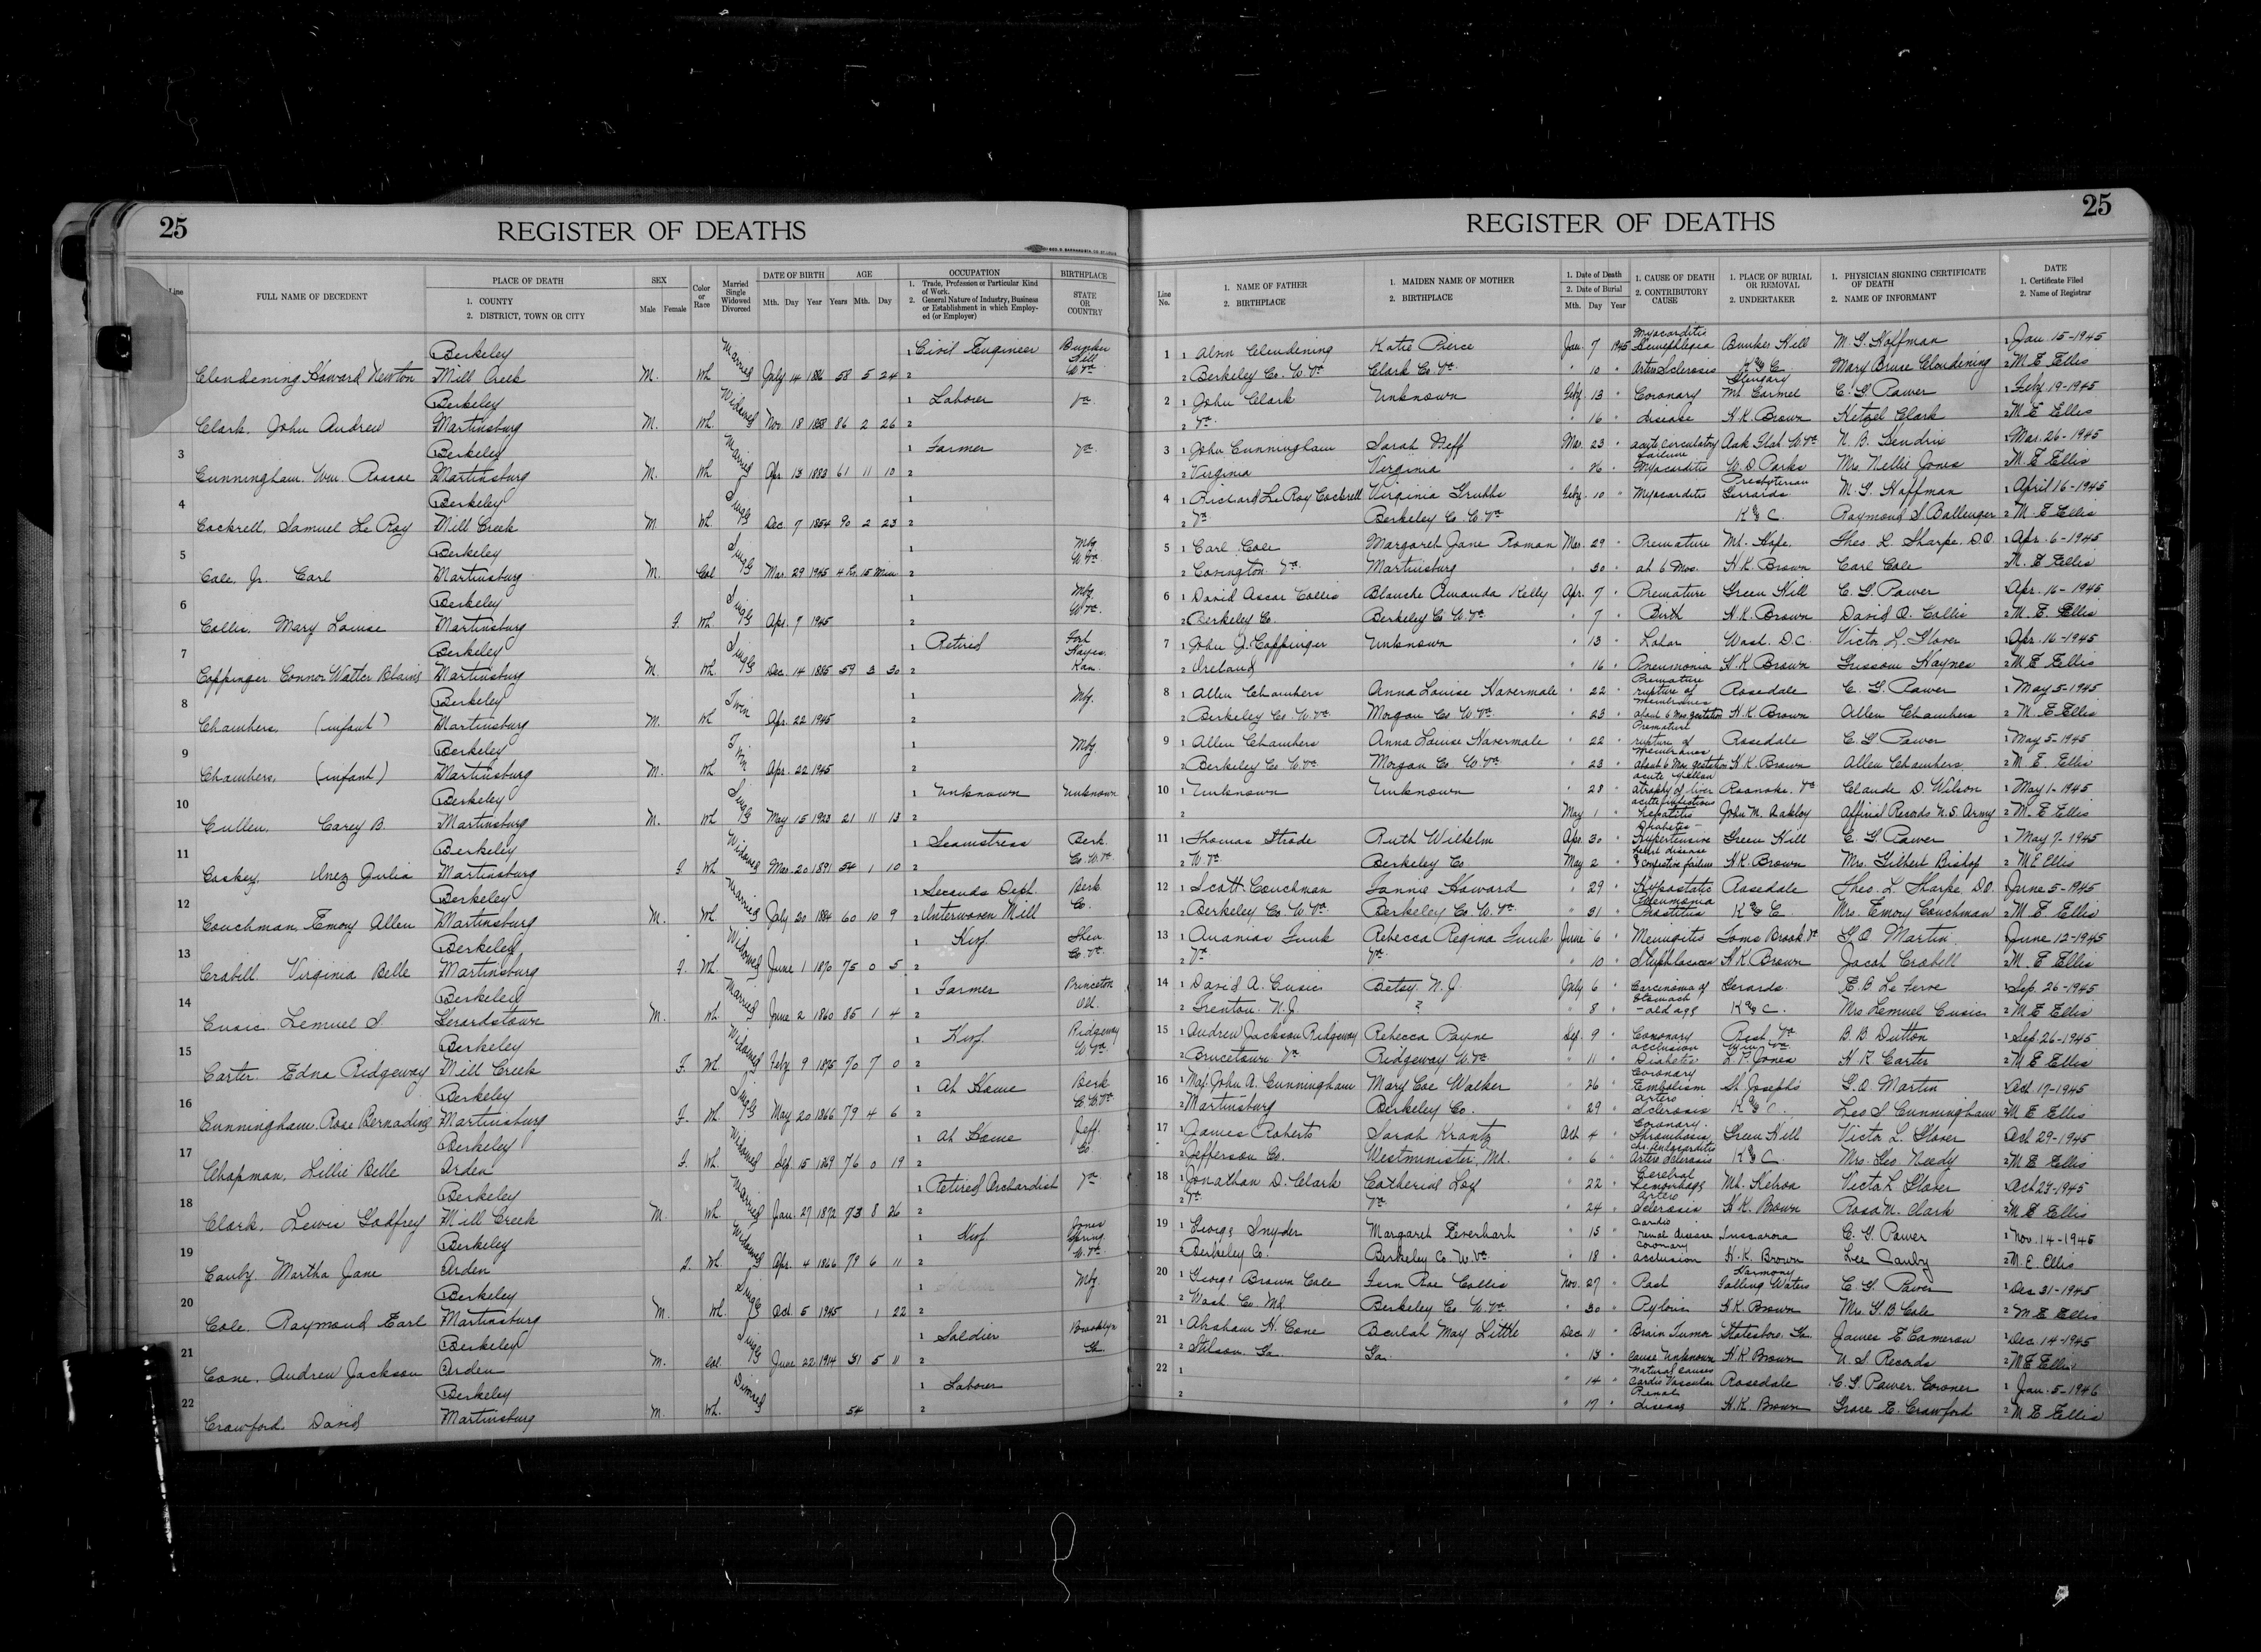 25
REGISTER OF DEATHS
Line
FULL NAME OF DECEDENT
PLACE OF DEATH
1. COUNTY
2. DISTRICT, TOWN OR CITY
SEX
Male Female
Color or Race
Married Single Widowed Divorced
DATE OF BIRTH
Mth. Day Year
AGE
Years Mth. Day
OCCUPATION
1. Trade, Profession or Particular Kind of Work.
2. General Nature of Industry, Business or Establishment in which Employed (or Employer)
BIRTHPLACE
STATE OR COUNTRY
Berkeley Married 1 Civil Engineer Bunker Hill W Va
Clendening Howard Newton Mill Creek M. Wh July 14 1886 58 5 24 2
Berkeley Widowed 1 Laborer Va
Clark, John Andrew Martinsburg M. Wh. Nov. 18 1858 86 2 26 2
3 Berkeley Married 1 Farmer Va
Cunningham, Wm. Roscoe Martinsburg M. Wh Apr 13 1883 61 11 10 2
4 Berkeley Single 1
Cockrell, Samuel Le Roy Mill Creek M Wh Dec 7 1854 90 2 23 2
5 Berkeley Single 1 Mbg W Va
Cole, Jr. Carl Martinsburg M. Col Mar 29 1945 4 hr. 15 min 2
6 Berkeley Single 1 Mbg. W Va.
Collis, Mary Louise Martinsburg F. Wh Apr. 7 1945 2
7 Berkeley Single 1 Retired Fort Hayes Kan.
Coppinger Connor Walter Blaine Martinsburg M. Wh. Dec. 14 1885 59 3 30 2
8 Berkeley Twin 1 Mbg.
Chambers, (infant) Martinsburg M. Wh Apr. 22 1945 2
9 Berkeley Twin 1 Mbg
Chambers, (infant) Martinsburg M. Wh. Apr. 22 1945 2
10 Berkeley Single 1 Unknown Unknown
Cullen, Carey B. Martinsburg M. Wh May 15 1923 21 11 13 2
11 Berkeley Widowed 1 Seamstress Berk. Co. W. Va.
Coskey, Inez Julia Martinsburg F Wh Mar. 20 1891 54 1 10 2
12 Berkeley Married 1 Seconds Dept. Berk Co.
Couchman, Emory Allen Martinsburg M. Wh. July 20 1884 60 10 9 2 Interwoven Mill
13 Berkeley Widowed 1 Hwf. Shen Co. Va.
Crabill Virginia Belle Martinsburg F. Wh. June 1 1870 75 0 5 2
14 Berkeley Married 1 Farmer Princeton
Cusic Lemuel S. Gerardstown M. Wh. June 2 1860 85 1 4 2
15 Berkeley Widowed 1 Hwf Ridgeway W Va.
Carter. Edna Ridgeway Mill Creek F. Wh Feby 9 1875 70 7 0 2
16 Berkeley Single 1 At Home Berk Co. W. Va
Cunningham, Rose Bernadine Martinsburg F. Wh. May 20 1866 79 4 6 2
17 Berkeley Widowed 1 At Home Jeff Co
Chapman, Lillie Belle Arden F. Wh. Sep. 15 1869 76 0 19 2
18 Berkeley Married 1 Retired Orchardist Va
Clark, Lewis Godfrey Mill Creek M. Wh. Jan. 27 1872 73 8 26 2
19 Berkeley Widowed 1 Hwf Jones Spring W. Va.
Canby. Martha Jane Arden F. Wh. Apr. 4 1866 79 6 11 2
20 Berkeley Single 1 Mbg
Cole. Raymond Earl Martinsburg M. Wh. Oct. 5 1945 1 22 2
21 Berkeley Single 1 Soldier Brooklyn Ga
Cone. Andrew Jackson Arden M. Col. June 22 1914 31 5 11 2
22 Berkeley Divorced 1 Laborer
Crawford. David Martinsburg M. Wh. 54 2
25
REGISTER OF DEATHS
Line No.
1. NAME OF FATHER
2. BIRTHPLACE
1. MAIDEN NAME OF MOTHER
2. BIRTHPLACE
1. Date of Death
2. Date of Burial
Mth. Day Year
1. CAUSE OF DEATH
2. CONTRIBUTORY CAUSE
1. PLACE OF BURIAL OR REMOVAL
2. UNDERTAKER
1. PHYSICIAN SIGNING CERTIFICATE OF DEATH
2. NAME OF INFORMANT
DATE
1. Certificate Filed
2. Name of Registrar
1 1 Alvin Clendening Katie Pierce Jan. 7 1945 Myocarditis Hemephlegia Bunker Hill M. G. Hoffman 1 Jan 15-1945
2 Berkeley Co. W. Va. Clark Co Va. " 10 " Arterio Sclerosis K & C. Mary Bruce Clendening 2 M E Ellis
2 1 John Clark Unknown Feby. 13 " Coronary Glengary Mt Carmel C. G. Power 1 Feby 19-1945
2 Va. " 16 " disease H. K. Brown Hetzel Clark 2 M E Ellis
3 1 John Cunningham Sarah Neff Mar. 23 " acute circulatory failure Oak Flat. W. Va N. B. Hendrix 1 Mar. 26-1945
2 Virginia Virginia " 26 " Myocarditis W. D. Parks Mrs. Nellie Jones 2 M. E Ellis
4 1 Richard Le Roy Cockrell Virginia Grubbs Feby. 10 " Myocarditis Presbyterian Gerrards M. G. Hoffman 1 April 16-1945
2 Va Berkeley Co. W. Va K & C. Raymond S. Ballenger 2 M. E Ellis
5 1 Carl Cole Margaret Jane Roman Mar. 29 " Premature Mt. Hope. Theo L. Sharpe, D.O. 1 Apr. 6-1945
2 Covington Va Martinsburg " 30 " at 6 Mos. H. K. Brown Carl Cole 2 M. E Ellis
6 1 David Oscar Collis Blanche Amanda Kelly Apr. 7 " Premature Green Hill C. G. Power 1 Apr. 16-1945
2 Berkeley Co. Berkeley Co W. Va " 7 " Birth H. K. Brown David O. Collis 2 M. E. Ellis
7 1 John J. Coppinger Unknown " 13 " Lobar Wash. D.C. Victor L. Glover 1 Apr. 16-1945
2 Ireland " 16 " Pneumonia H. K. Brown Grissom Haynes 2 M E Ellis
8 1 Allen Chambers Anna Louise Havermale " 22 " Premature rupture of membranes Rosedale C. G. Power 1 May 5-1945
2 Berkeley Co. W. Va Morgan Co W. Va. " 23 " about 6 Mos. gestation H. K. Brown Allen Chambers 2 M. E Ellis
9 1 Allen Chambers Anna Louise Havermale " 22 " Premature rupture of membranes Rosedale C. G Power 1 May 5-1945
2 Berkeley Co W. Va. Morgan Co W. Va. " 23 " about 6 Mos gestation H. K. Brown Allen Chambers 2 M. E. Ellis
10 1 Unknown Unknown " 28 " acute yellow atrophy of liver Roanoke. Va Claude D. Wilson 1 May 1-1945
2 May 1 " acute infectious hepatitis John M. Oakley Official Records U.S. Army 2 M. E Ellis
11 1 Thomas Strode Ruth Wilhelm Apr. 30 " Diabetes- Hypertensive heart disease Green Hill C. G. Power 1 May 7-1945
2 W. Va Berkeley Co May 2 " & Congestive failure H. K. Brown Mrs. Gilbert Bishop 2 M E Ellis
12 1 Scott Couchman Fannie Howard " 29 " Hypostatic Pneumonia Rosedale Theo. L. Sharpe, D.O. 1 June 5-1945
2 Berkeley Co. W. Va Berkeley Co. W. Va. " 31 " Prostitis K & C. Mrs. Emory Couchman 2 M E Ellis
13 1 Ananias Funk Rebecca Regina Funk June 6 " Meningitis Toms Brook Va G. O Martin 1 June 12-1945
2 Va. Va. " 10 " H. K. Brown Jacob Crabill 2 M. E Ellis
14 1 David A. Cusic Betsy N. J. July 6 " Carcinoma of Stomach Gerards. E. B Le Fevre 1 Sep. 26-1945
2 Trenton. N. J ? " 8 " - old age K & C. Mrs Lemuel Cusic 2 M E Ellis
15 1 Andrew Jackson Ridgeway Rebecca Payne Sep. 9 " Coronary occlusion Rest Va B. B. Dutton 1 Sep. 26-1945
2 Brucetown Va Ridgeway W. Va. " 11 " Diabetes L. P. Jones H. R. Carter 2 M E Ellis
16 1 Maj. John A. Cunningham Mary Coe Walker " 26 " Coronary Embolism St Joseph's G. O. Martin 1 Oct 17-1945
2 Martinsburg Berkeley Co. " 29 " Arterio Sclerosis K & C. Leo S Cunningham 2 M E Ellis
17 1 James Roberts Sarah Krantz Oct 4 " Coronary Thrombosis Green Hill Victor L. Glover 1 Oct 29-1945
2 Jefferson Co. Westminister, Md. " 6 " Ch Endocarditis Arterio Sclerosis K & C. Mrs. Geo. Needy 2 M E Ellis
18 1 Jonathan D. Clark Catherine Loy " 22 " Cerebral hemorrhage Mt. Hebron Victor L Glover 1 Oct 27-1945
2 Va Va. " 24 " Arterio Sclerosis H. K. Brown Rosa N. Clark 2 M E Ellis
19 1 George Snyder Margaret Everhart " 15 " Cardio renal disease Tuscarora C. G. Power 1 Nov. 14-1945
2 Berkeley Co. Berkeley Co W. Va. " 18 " coronary occlusion H. K. Brown Lee Canby 2 M. E. Ellis
20 1 George Brown Cole Fern Rae Collis Nov. 27 " Post Harmony Falling Waters C. G. Power 1 Dec 31-1945
2 Wash Co. Md. Berkeley Co. W. Va. " 30 " Pyloric H. K. Brown Mrs. G. B. Cole 2 M E Ellis
21 1 Abraham H. Cone Beulah May Little Dec. 11 " Brain Tumor Statesboro. Ga. James E Cameron 1 Dec. 14-1945
2 Stilson. Ga Ga. " 13 " Cause Unknown H. K Brown U. S Records 2 M E Ellis
22 1 " 14 " Natural causes Cardio Vascular Rosedale C. G. Power, Coroner 1 Jan. 5-1946
2 " 17 " Renal disease H. K. Brown Grace E. Crawford 2 M E Ellis